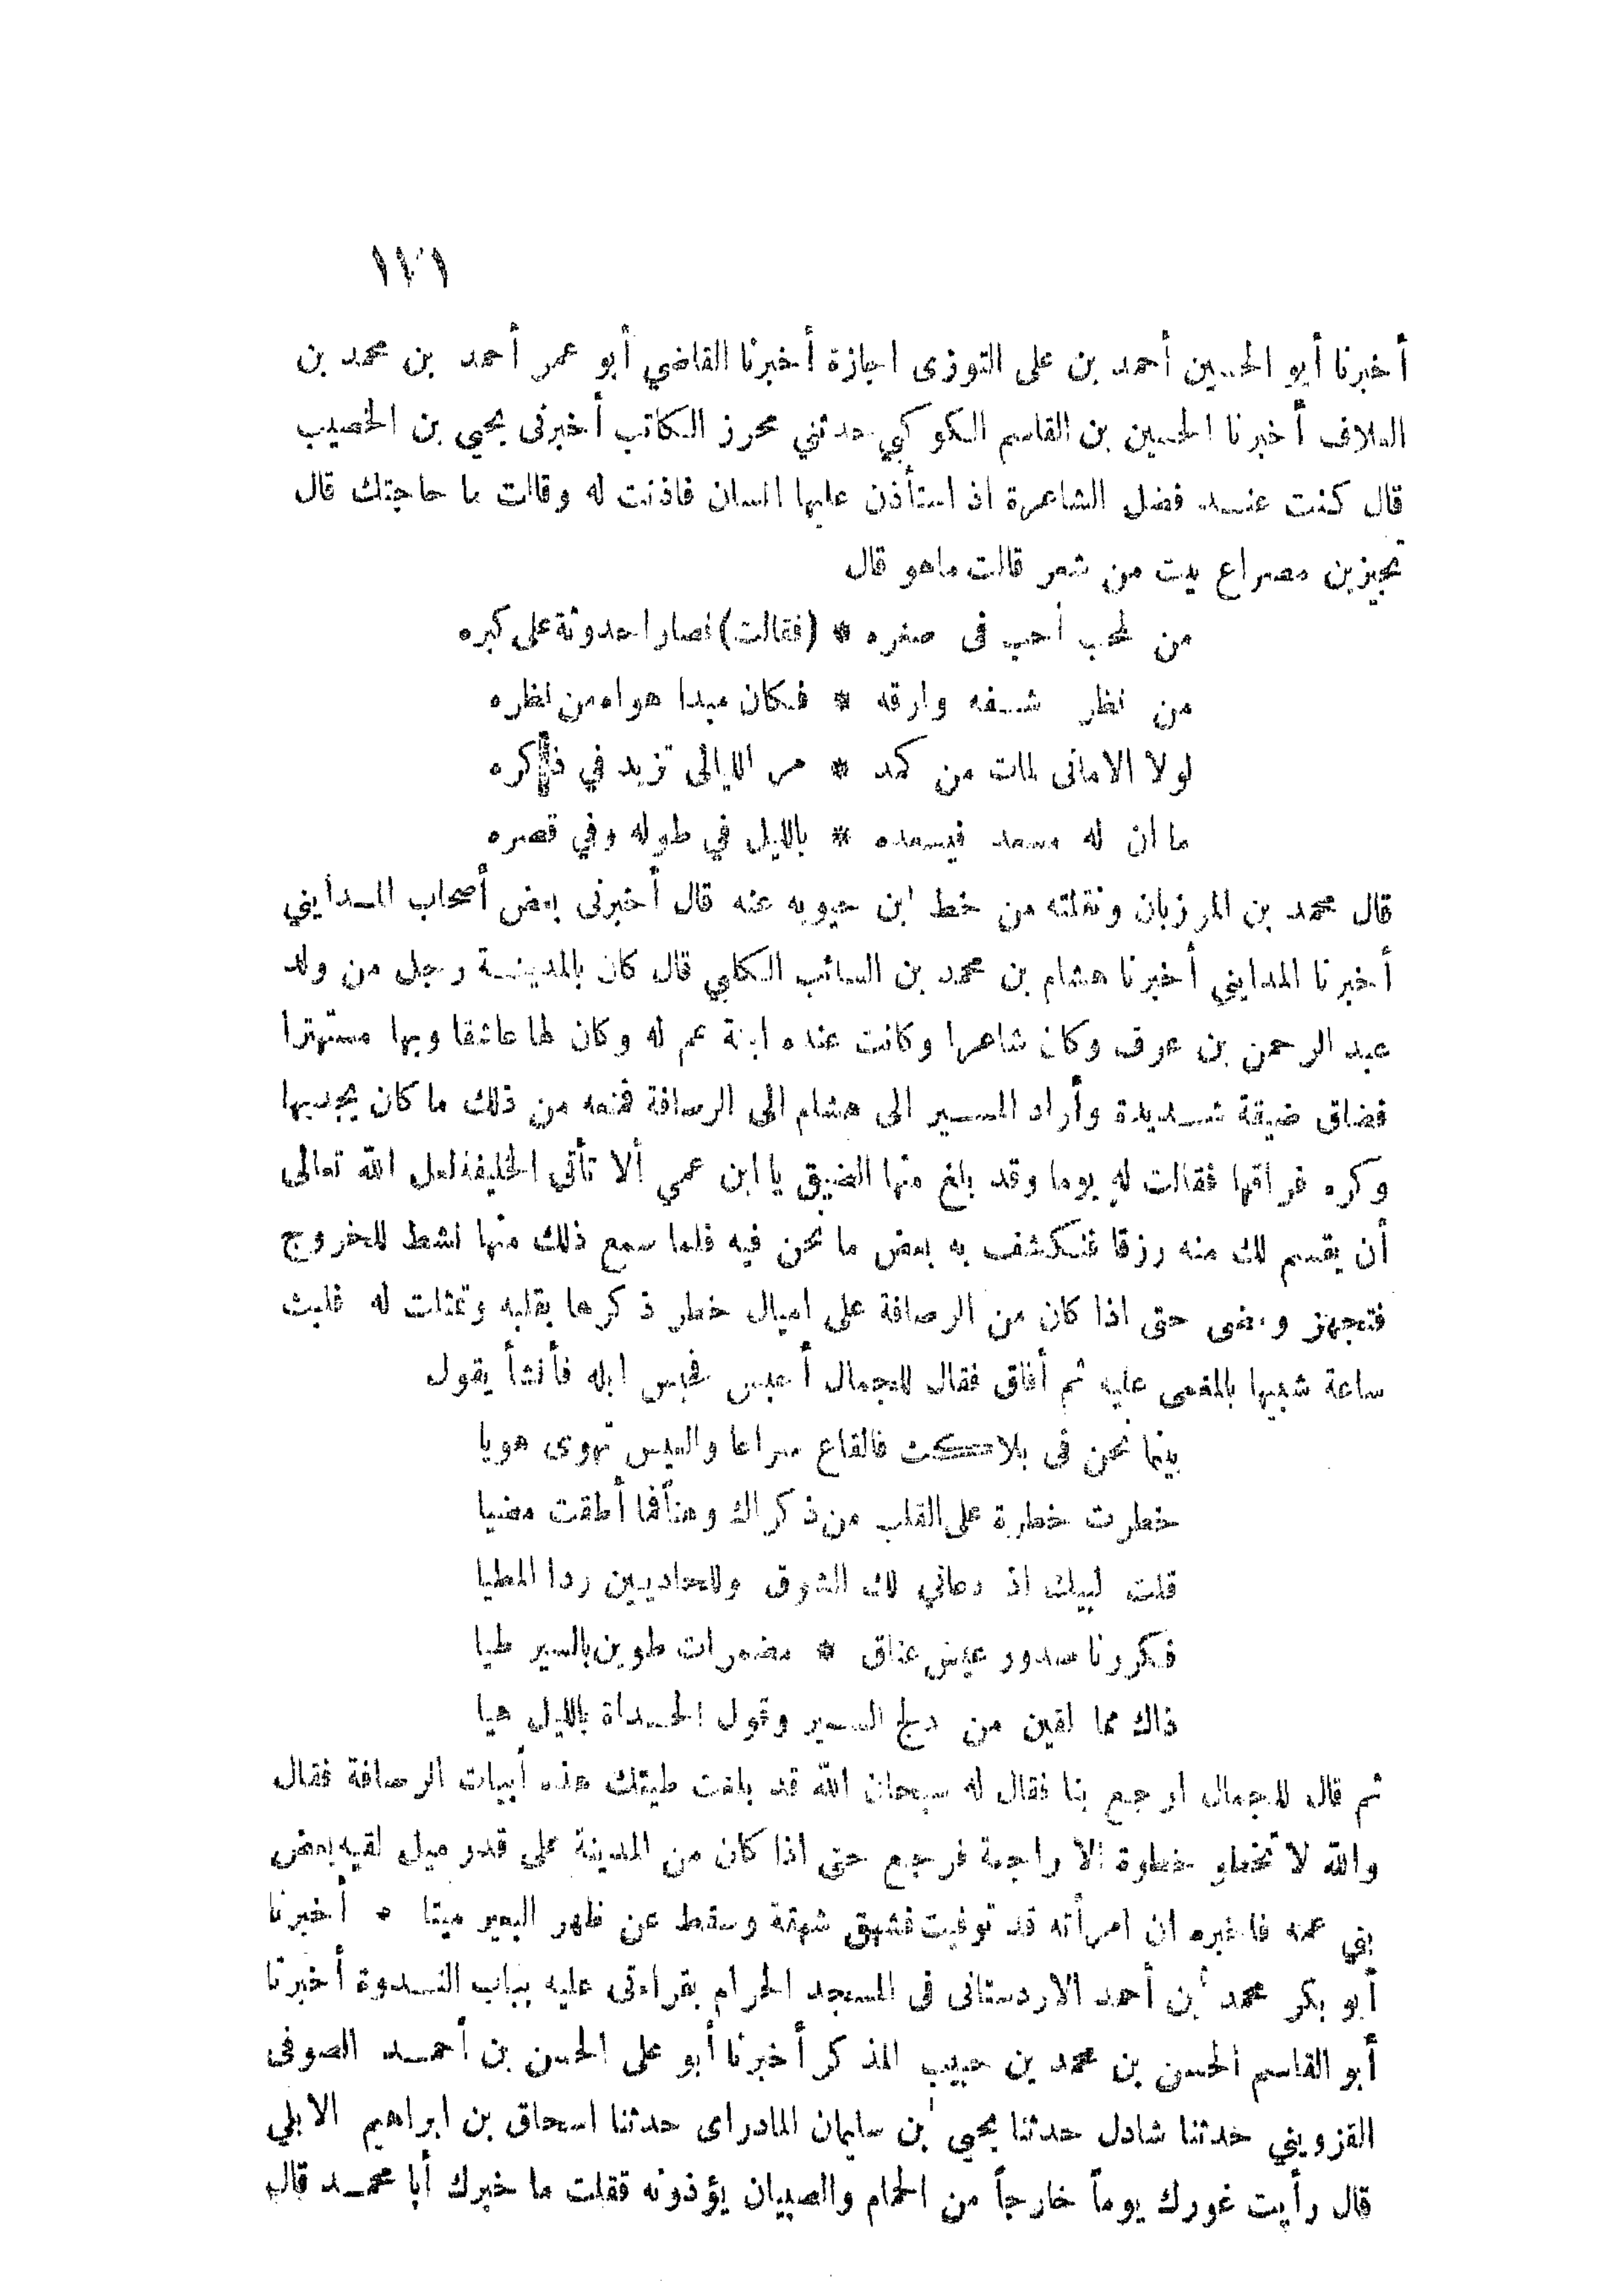 ١٧١
أخبرنا أبو الحسين أحمد بن على التوزى اجازة أخبرنا القاضي أبو عمر أحمد بن محمد بن
العلاف أخبرنا الحسين بن القاسم الكوكبي حدثني محرز الكاتب أخبرنى يحيى بن الخصيب
قال كنت عند فضل الشاعرة اذ استأذن عليها انسان فاذنت له وقالت ما حاجتك قال
تجيزين مصراع بيت من شعر قالت ماهو قال
من لمحب أحب فى صغره * (فقالت) فصار احدوثة على كبره
من نظر شفه وارقه * فكان مبدا هواه من نظره
لولا الامانى لمات من كمد * مر الليالى تزيد في فكره
ما ان له مسعد فيسعده * بالليل في طوله وفي قصره
قال محمد بن المرزبان ونقلته من خط ابن حيويه عنه قال أخبرنى بعض أصحاب المدايني
أخبرنا المدايني أخبرنا هشام بن محمد بن السائب الكلبي قال كان بالمدينة رجل من ولد
عبد الرحمن بن عوف وكان شاعرا وكانت عنده ابنة عم له وكان لها عاشقا وبها مستهترا
فضاق ضيقة شديدة وأراد المسير الى هشام الى الرصافة فمنعه من ذلك ما كان يجد بها
وكره فراقها فقالت له يوما وقد بلغ منها الضيق يا ابن عمي ألا تأتى الخليفة لعل الله تعالى
أن يقسم لك منه رزقا فنكشف به بعض ما نحن فيه فلما سمع ذلك منها نشط للخروج
فتجهز ومضى حتى اذا كان من الرصافة على اميال خطر ذكرها بقلبه وتمثلت له فلبث
ساعة شبيها بالمغمى عليه ثم أفاق فقال للجمال أحبس فحبس ابله فأنشأ يقول
بينما نحن فى بلاكث فالقاع سراعا والعيس تهوى هويا
خطرت خطرة على القلب من ذكراك وهنا فما أطقت مضيا
قلت لبيك اذ دعاني لك الشوق وللحاديين ردا المطيا
فكررنا صدور عيس عناق * مضمرات طوين بالسير طيا
ذاك مما لقين من دلج السير وقول الحداة بالليل هيا
ثم قال للجمال ارجع بنا فقال له سبحان الله قد بلغت طيتك هذه أبيات الرصافة فقال
والله لا تخطو خطوة الا راجعة فرجع حتى اذا كان من المدينة على قدر ميل لقيه بعض
بني عمه فاخبره ان امرأته قد توفيت فشهق شهقة وسقط عن ظهر البعير ميتا * أخبرنا
أبو بكر محمد بن أحمد الاردستانى فى المسجد الحرام بقراءتى عليه بباب الندوة أخبرنا
أبو القاسم الحسن بن محمد بن حبيب المذكر أخبرنا أبو على الحسن بن أحمد الصوفى
القزويني حدثنا شادل حدثنا يحيى بن سليمان المادراى حدثنا اسحاق بن ابراهيم الابلي
قال رأيت غورك يوماً خارجاً من الحمام والصبيان يؤذونه فقلت ما خبرك أبا محمد قال